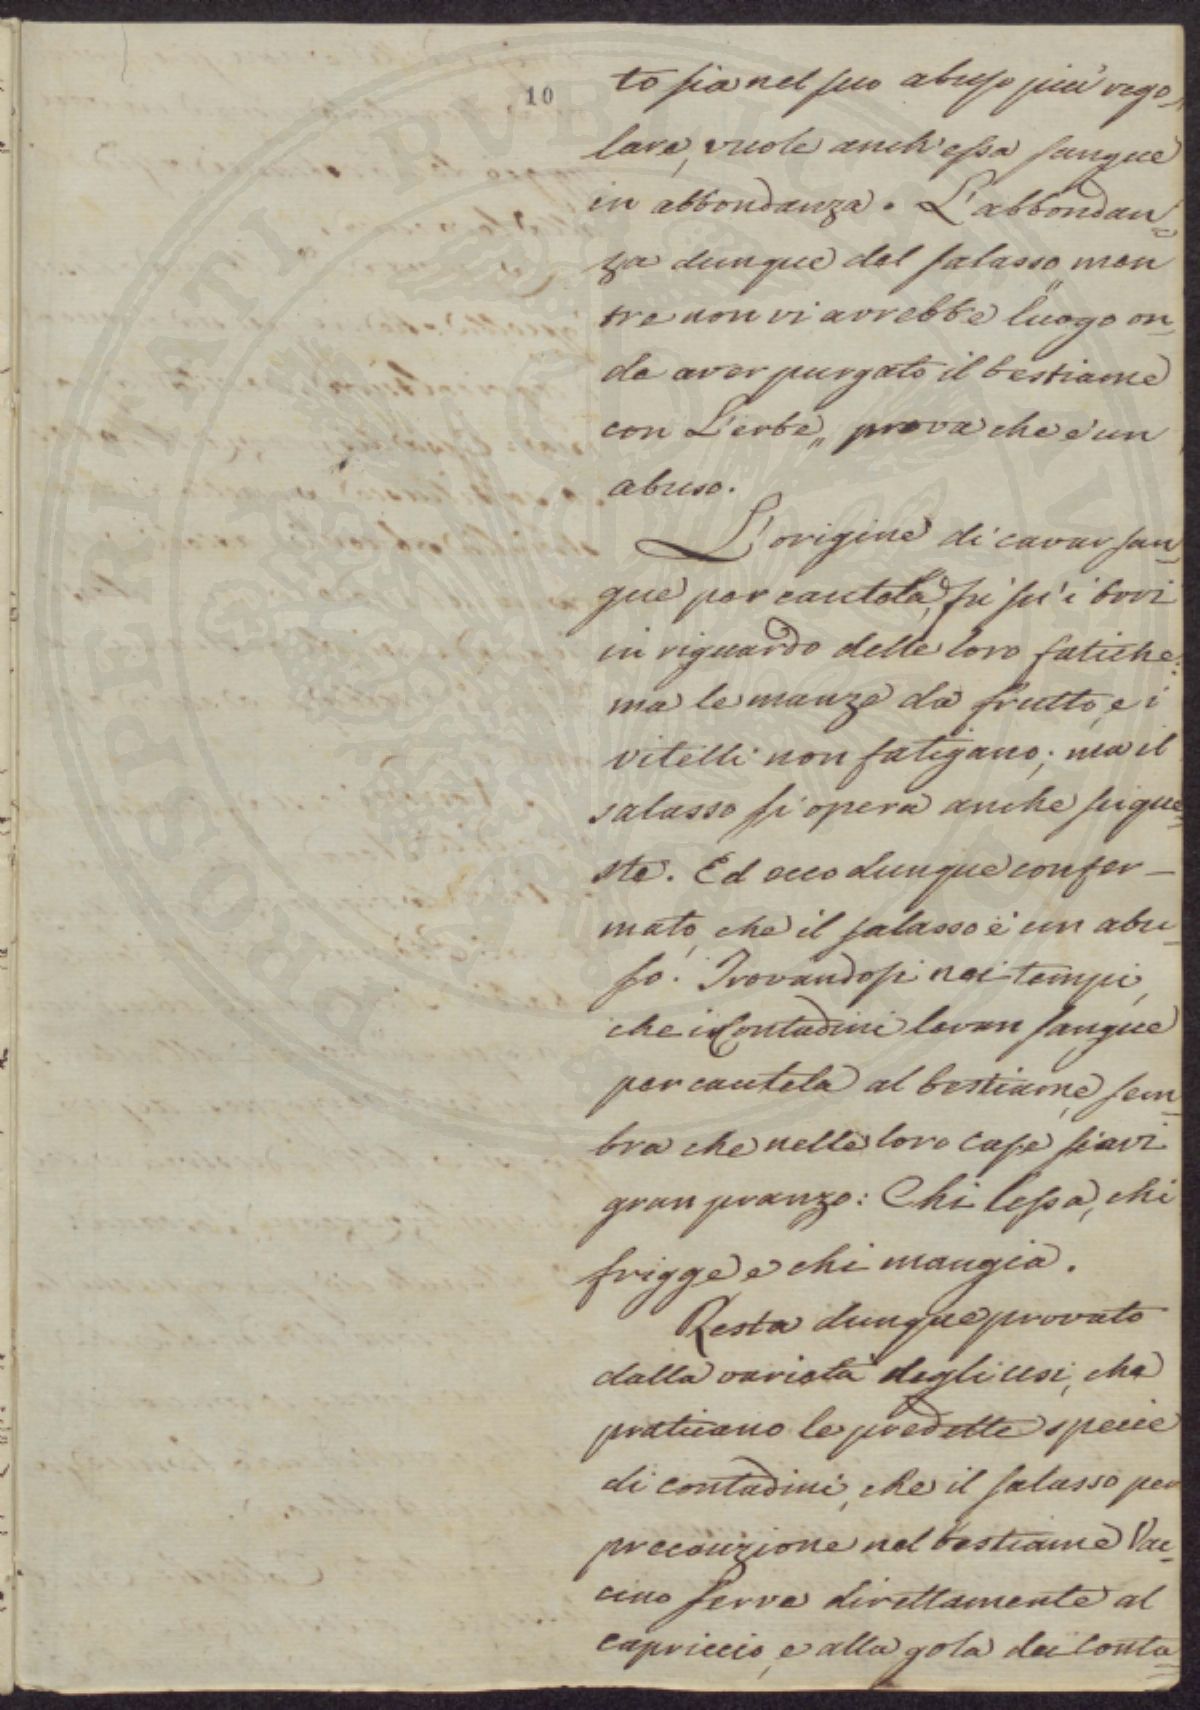 10
to sia nel suo abuso piu' rego„
lare, vuole anch'essa sangue
in abbondanza. L'abbondan=
za dunque del salasso „ men
tre non vi avrebbe luogo on=
de aver purgato il bestiame
con L'erbe „ prova che e' un
abuso.
L'origine di cavar san=
gue per cautela, fu su' i bovi
in riguardo delle loro fatiche:
ma le manze da frutto, e i
vitelli non fatigano; ma il
salasso si opera anche su que=
ste. Ed ecco dunque confer-
mato, che il salasso e' un abu=
so. Trovandosi nei tempi,
che i Contadini levan sangue
per cautela al bestiame, sem=
bra che nelle loro case siavi
gran pranzo: Chi lessa, chi
frigge e chi mangia.
Resta dunque provato
dalla varieta' degli usi, che
praticano le predette specie
di contadini, che il salasso per
precauzione nel bestiame Vac=
cino serve direttamente al
capriccio, e alla gola dei Conta=
PROSPERITATI PVBLICAE